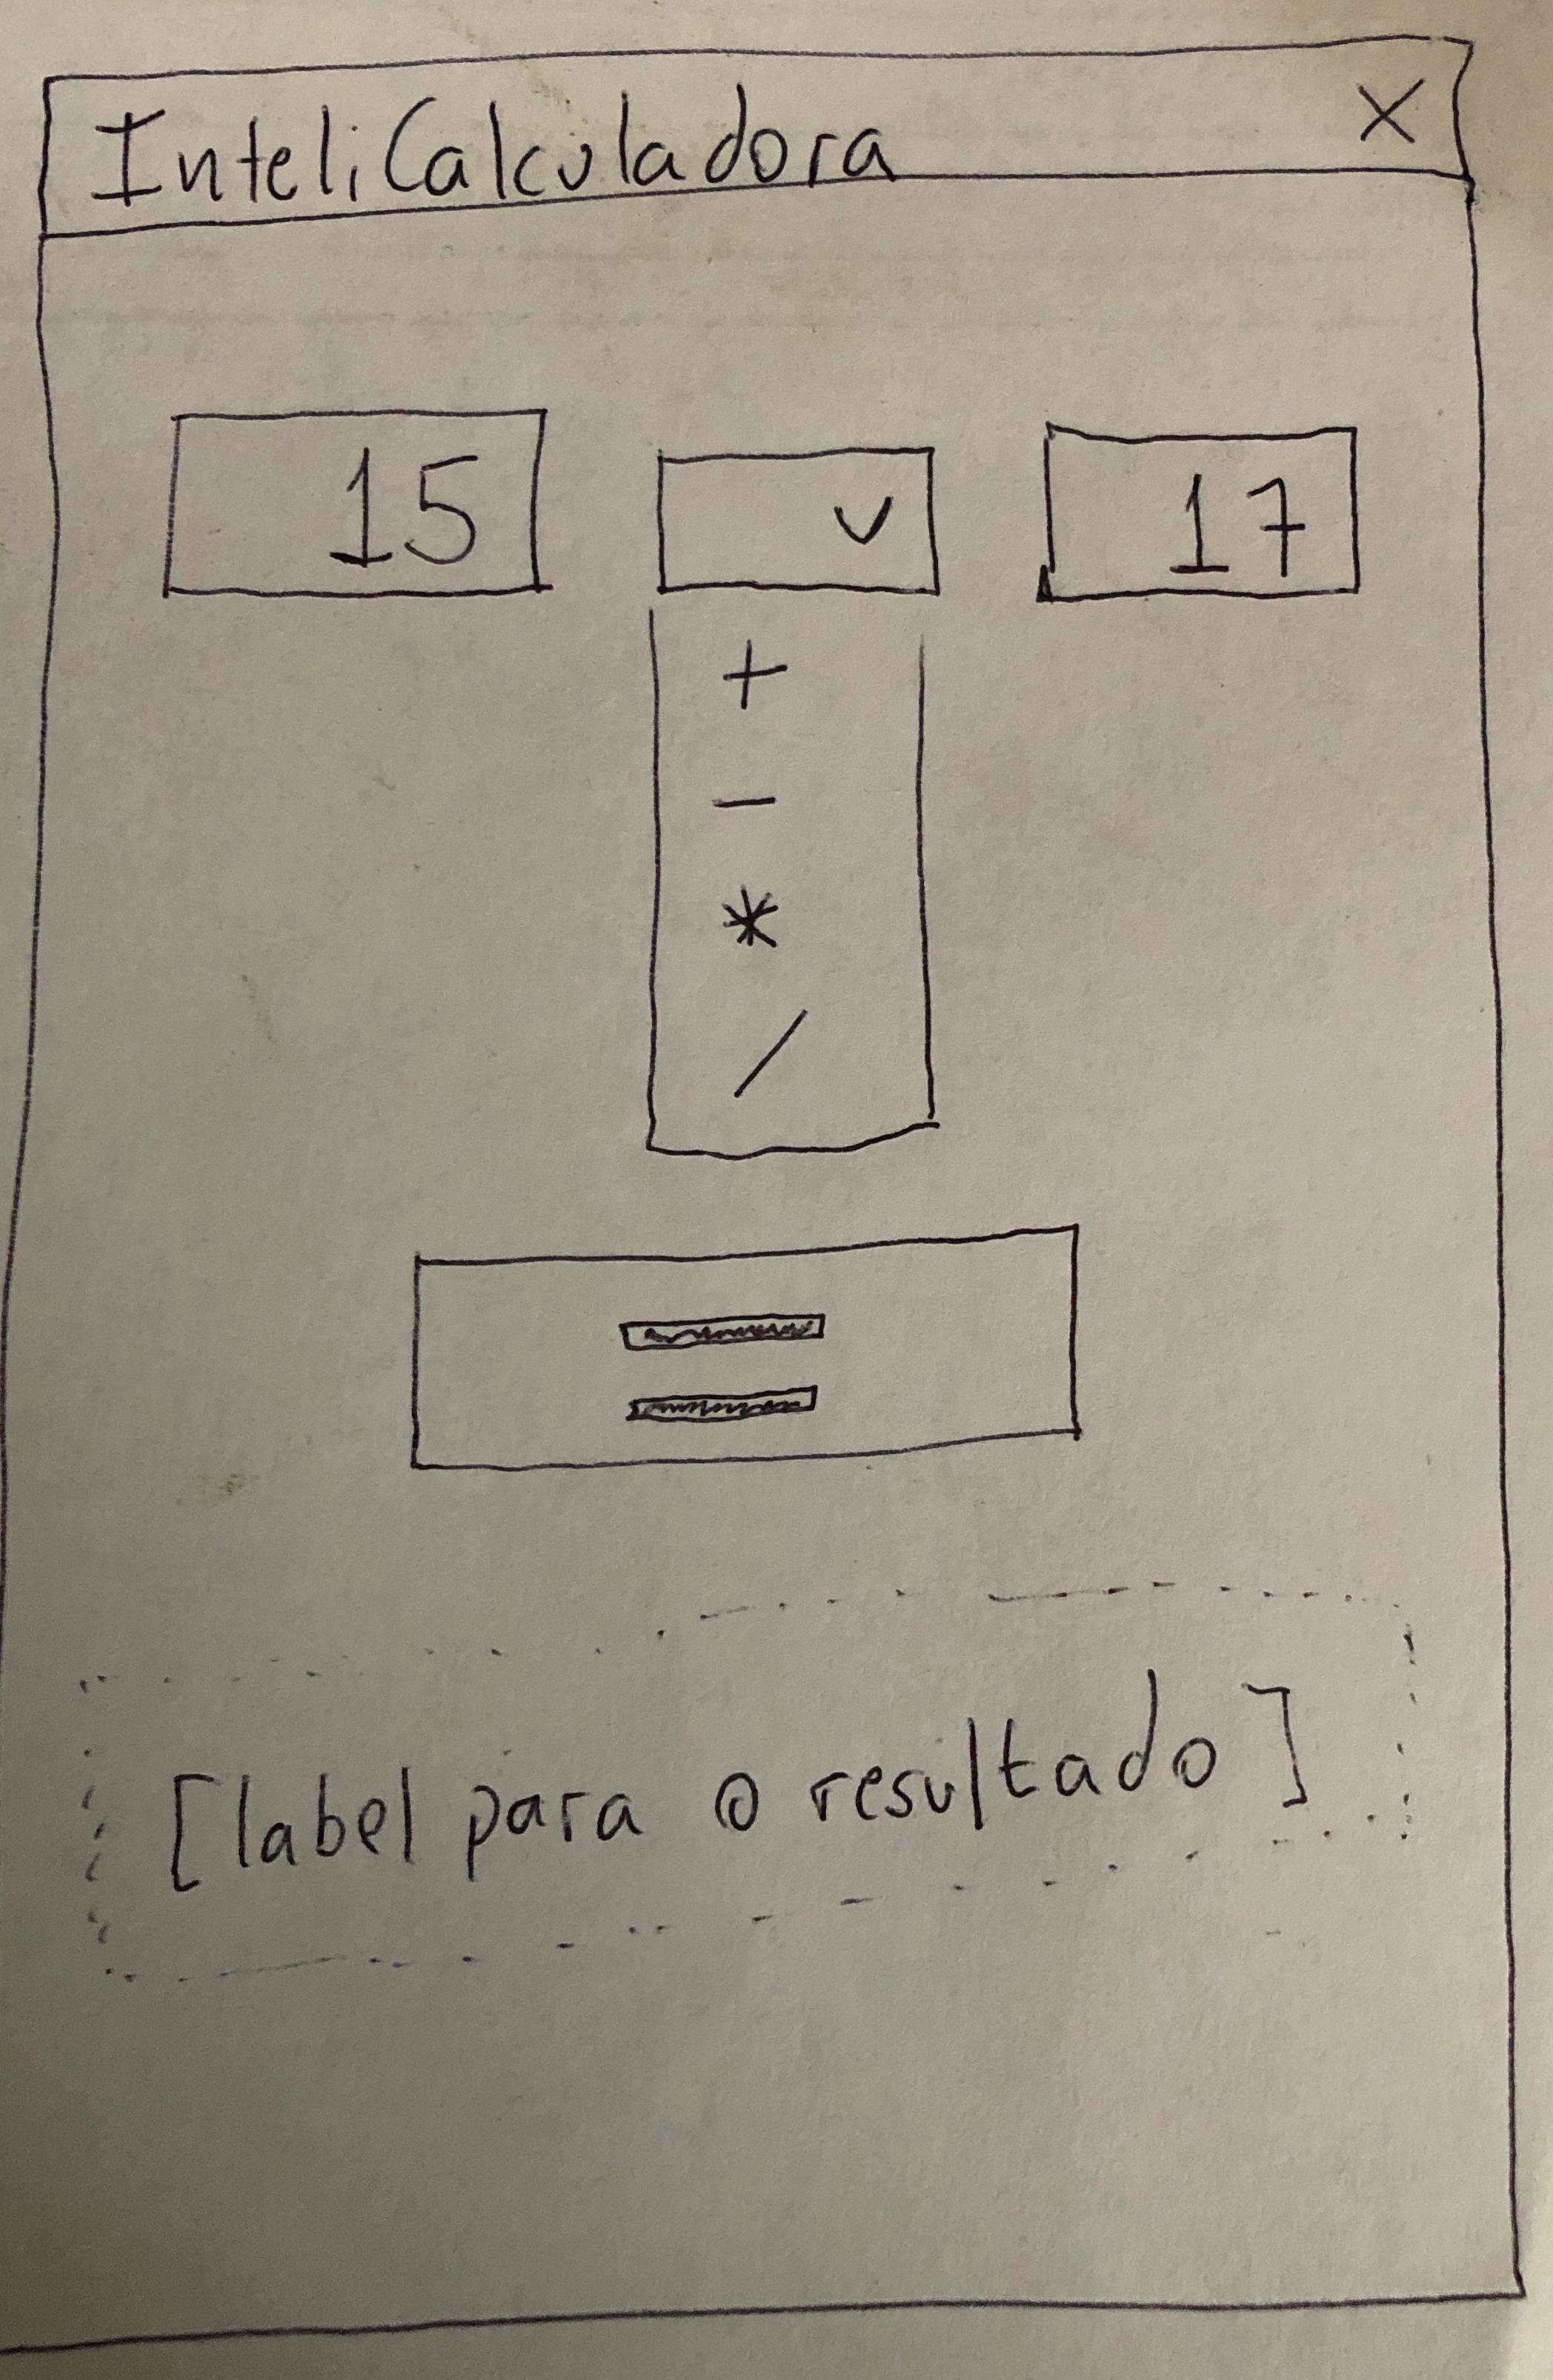 InteliCalculadora X
15 v 17
+
-
*
/
=
[label para o resultado]